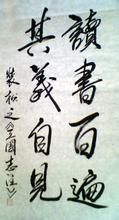 讀書百遍
其義自見
裴松之《三國志注》